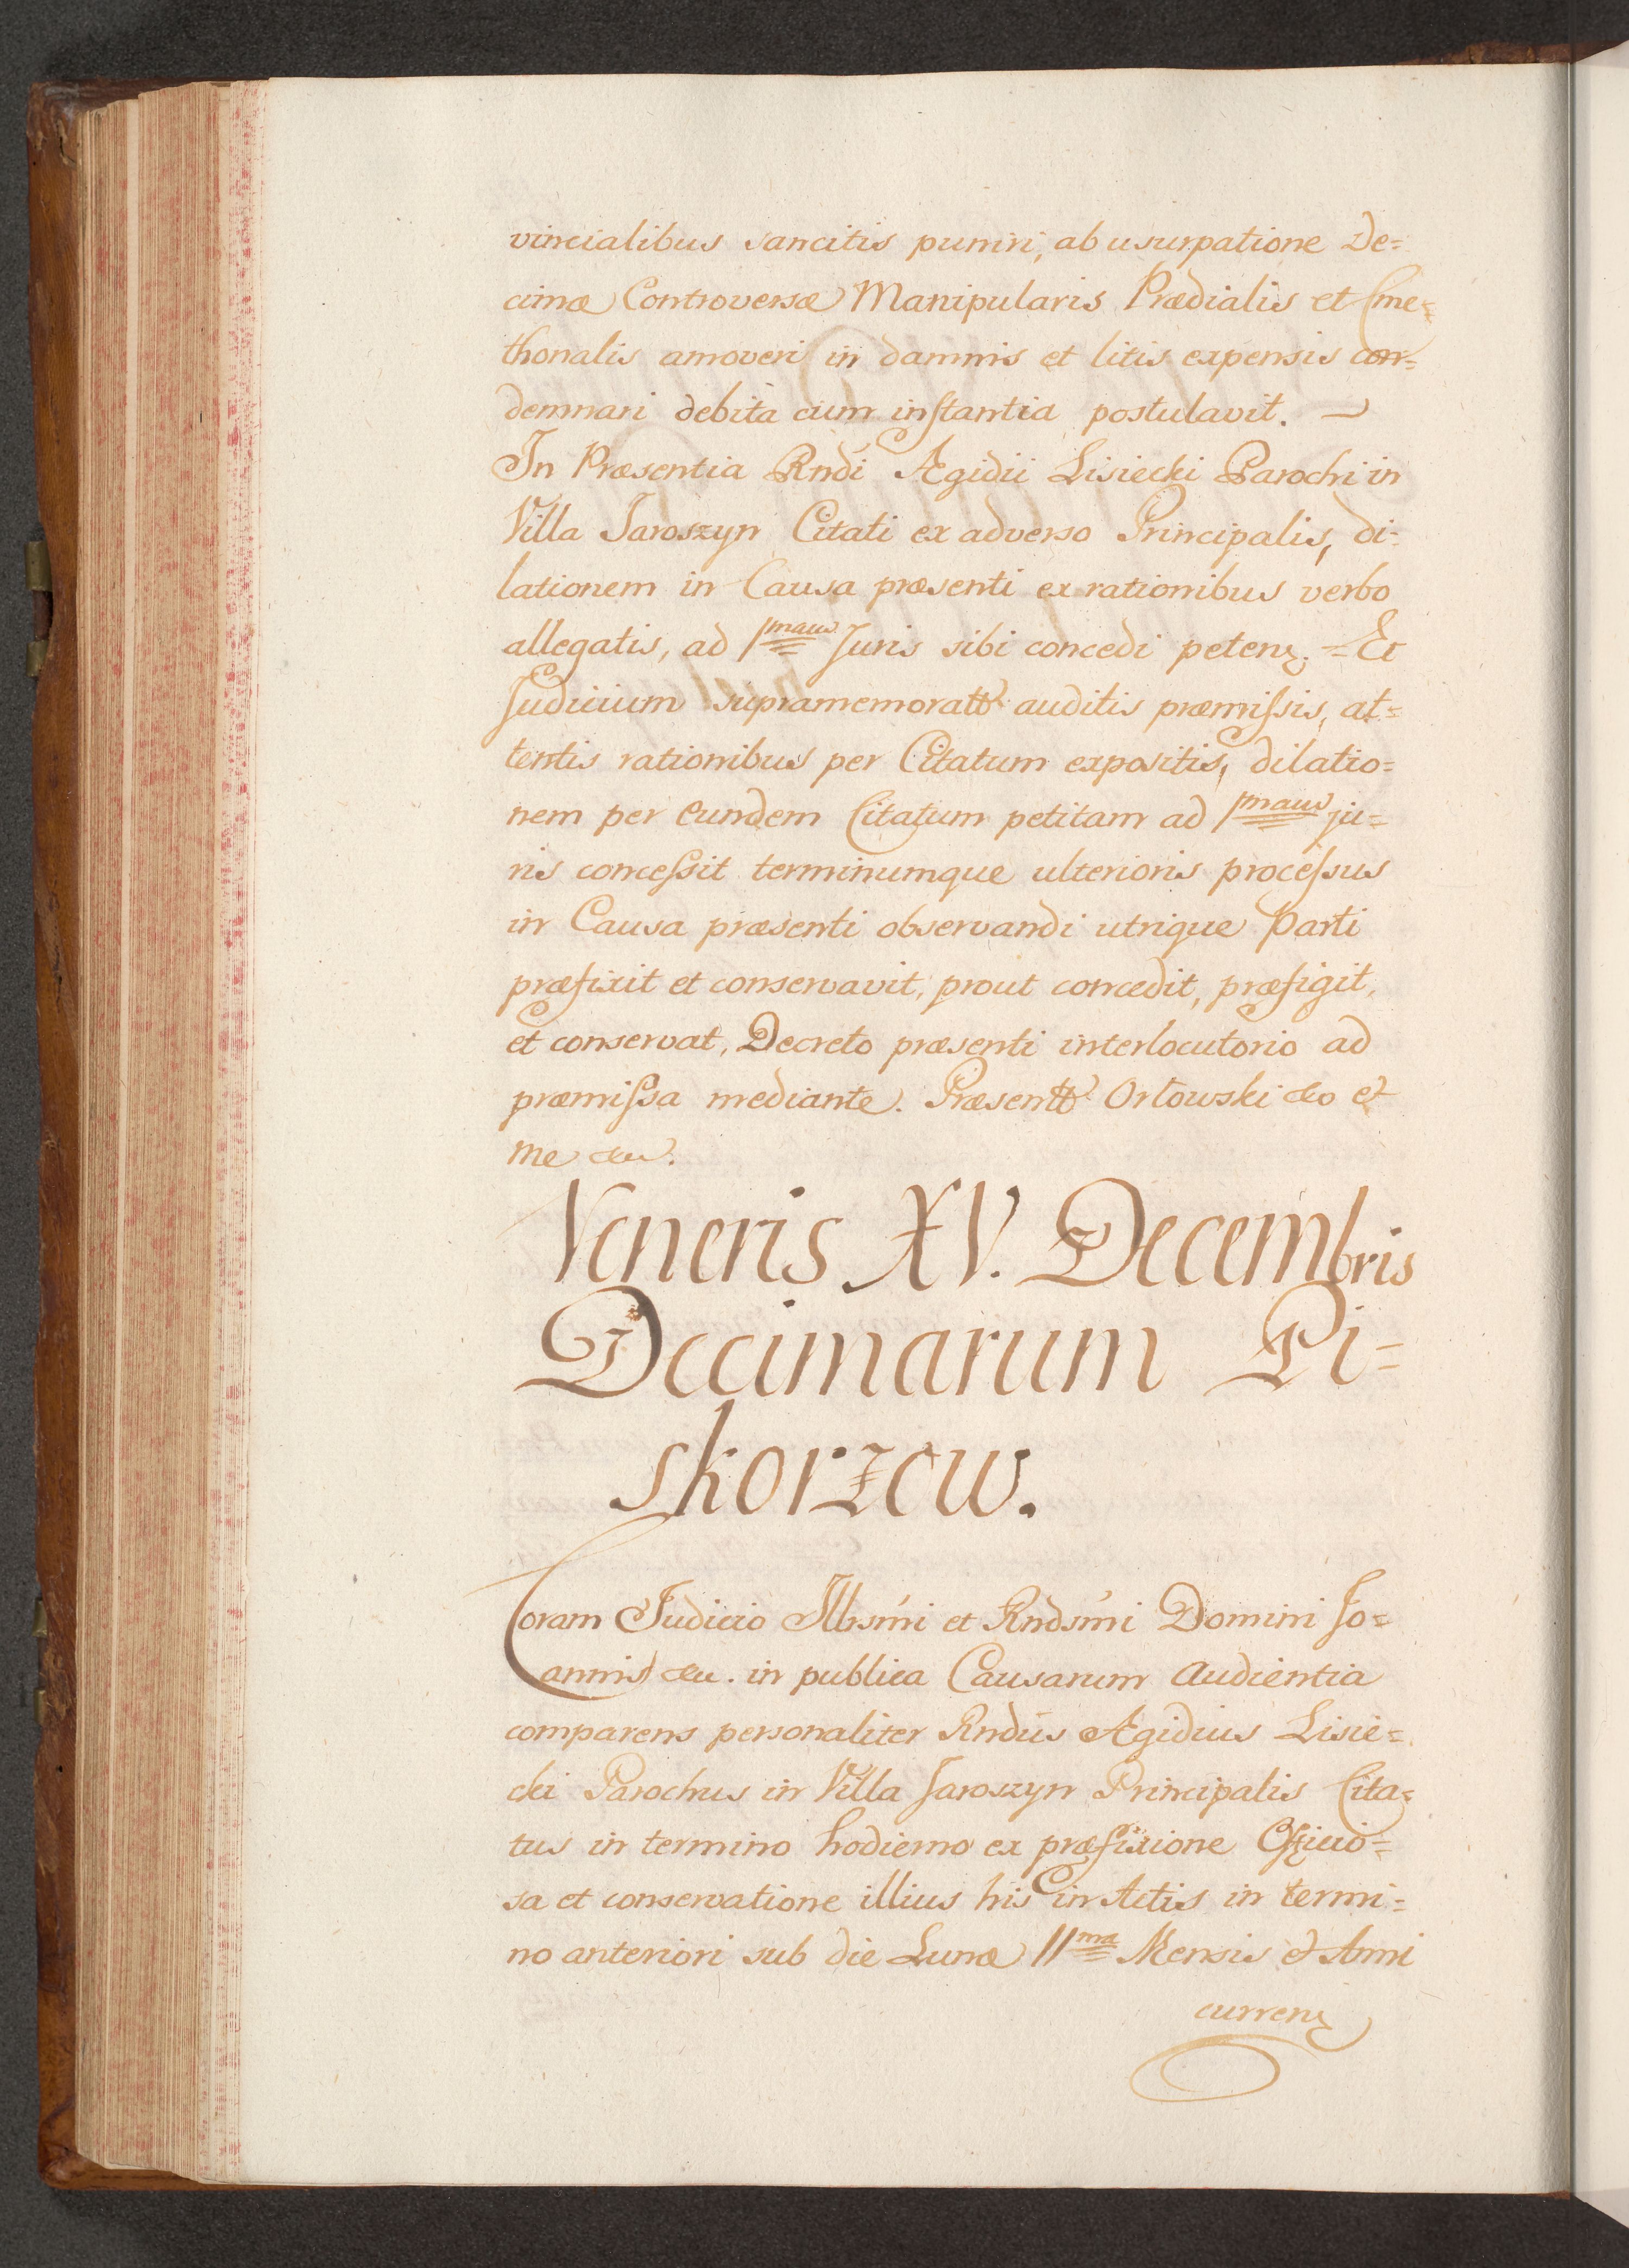 vincialibus sancitis puniri, ab usurpatione De=
cimæ Controversæ Manipularis Prædialis et Cme=
thonalis amoveri in damnis et litis expensis con=
demnari debita cum instantia postulavit. —
In Præsentia Rndi Ægidii Lisiecki Parochi in
Villa Jaroszyn Citati ex adverso Principalis, di=
lationem in Causa præsenti ex rationibus verbo
allegatis, ad Juris sibi concedi peten. = Et
Judicium supramemoratt auditis præmissis, at=
tentis rationibus per Citatum expositis, dilatio=
nem per eundem Citatum petitam ad ju=
ris concessit terminumque ulterioris processus
in Causa præsenti observandi utrique Parti
præfixit et conservavit, prout concedit, præfigit,
et conservat, Decreto præsenti interlocutorio ad
præmissa mediante. Præsentt Orłowski &o et
me &c.
Veneris XV. Decembris
Decimarum Pi=
skorzew.
Coram Judicio Illrsmi et Rndsmi Domini Jo=
annis &c. in publica Causarum Audientia
comparens personaliter Rndus Ægidius Lisie=
cki Parochus in Villa Jaroszyn Principalis Cita=
tus in termino hodierno ex præfixione Officio=
sa et conservatione illius his in Actis in termi=
no anteriori sub die Lunæ 11ma Mensis et Anni
curren